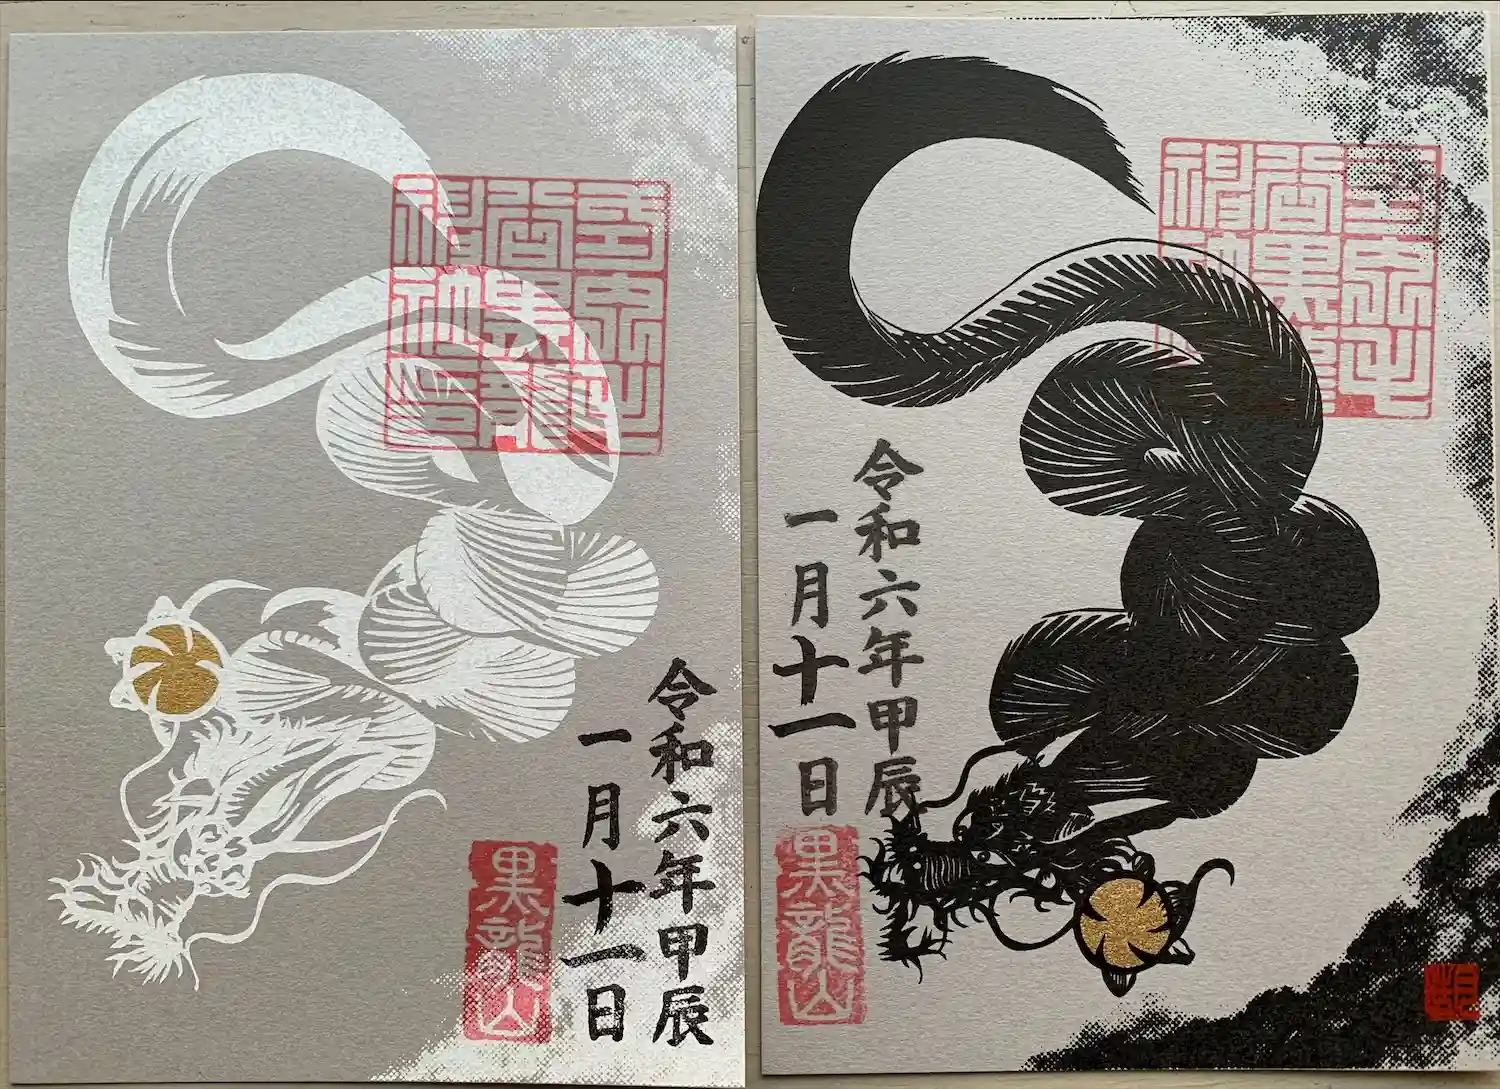 令和六年甲辰
一月十一日
黒龍山
令和六年甲辰
一月十一日
黒龍山